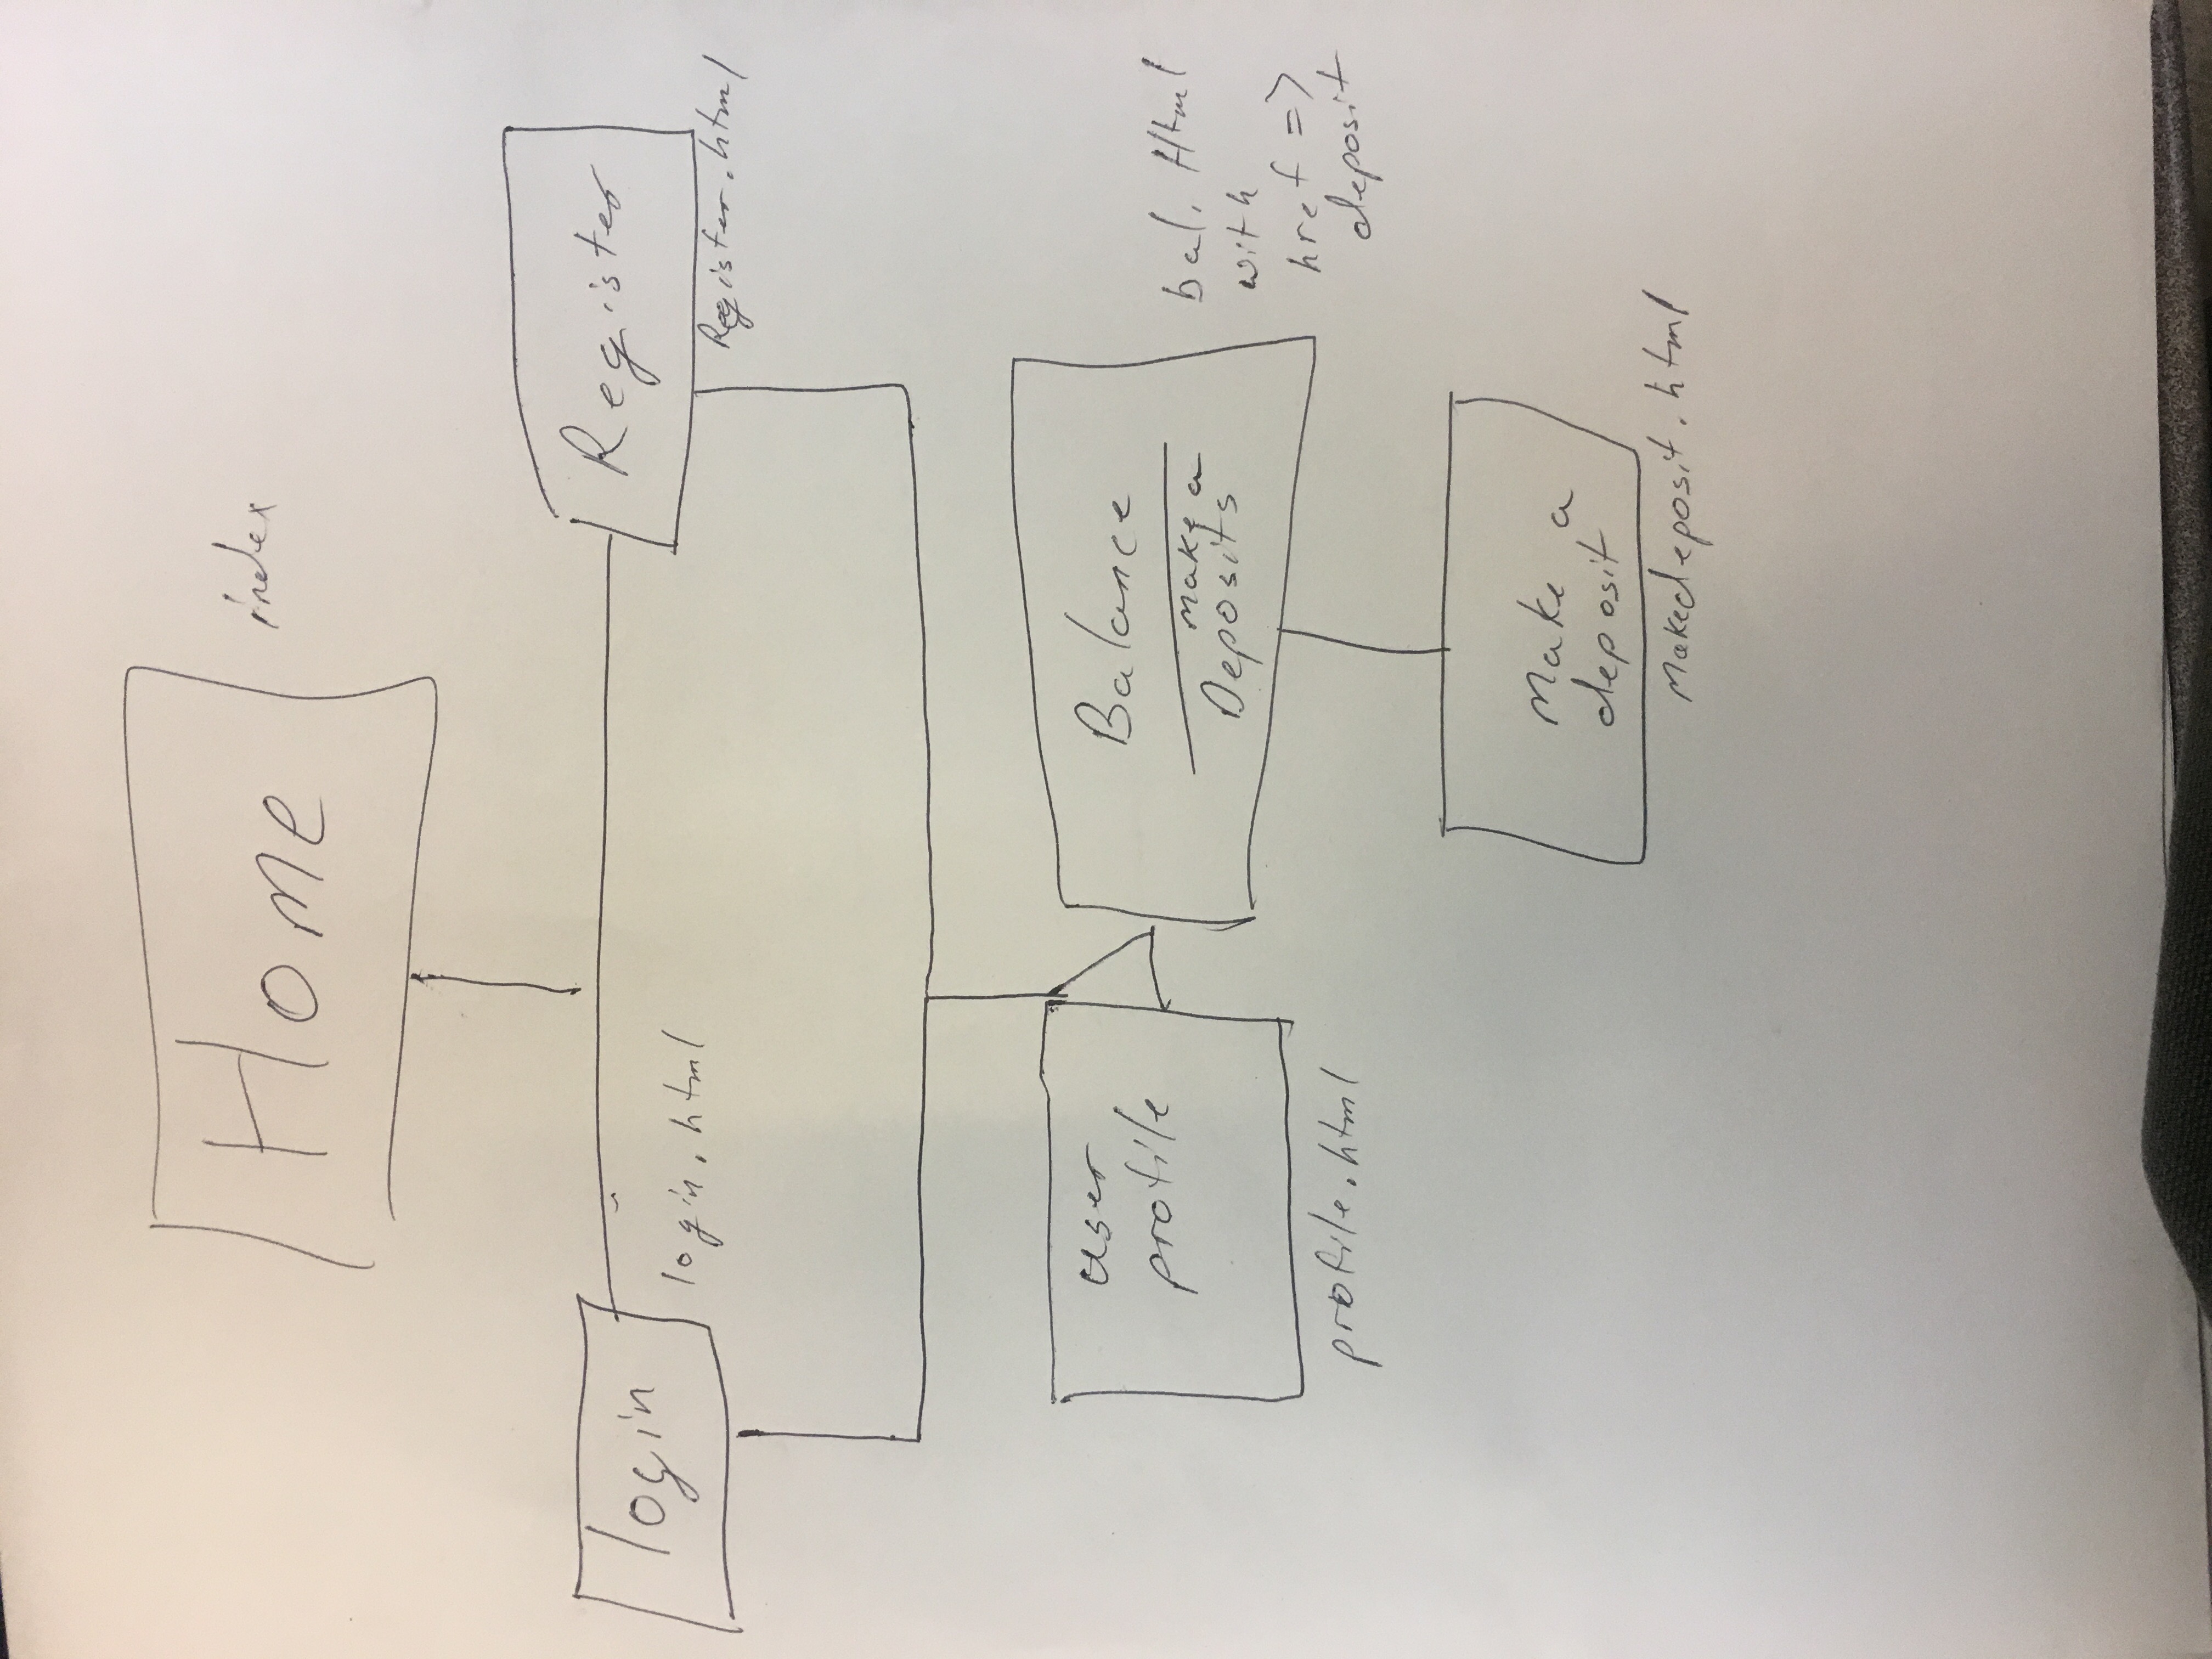 Home
index
login
login.html
Register
Register.html
user
profile
profile.html
Balance
make a
Deposits
bal. Html
with
href =>
deposit
Make a
deposit
Makedeposit.html